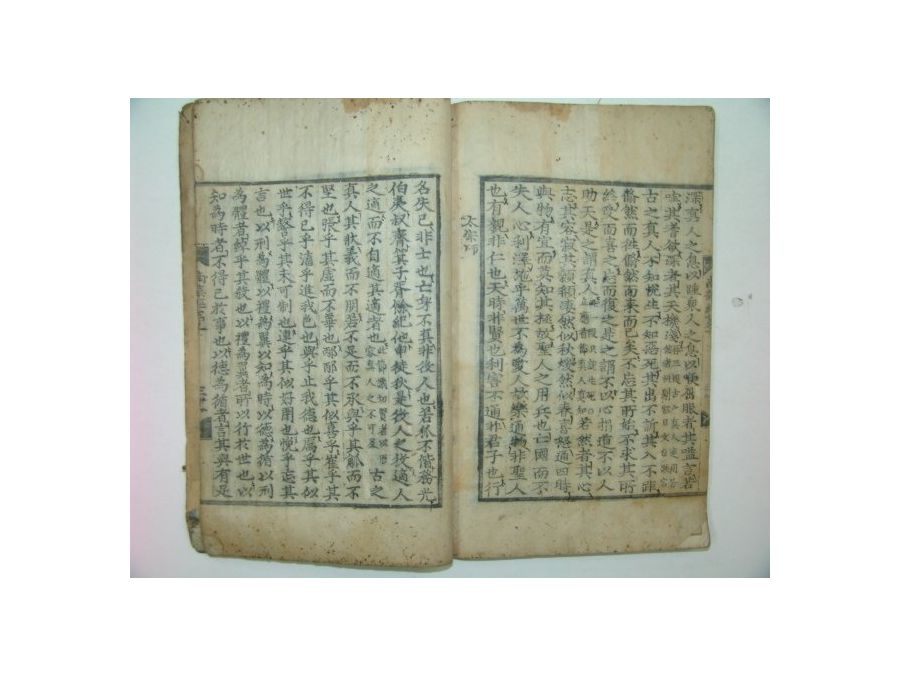 深真人之息以踵衆人之息以喉屈服者其嗌言若
哇其耆欲深者其天機淺
古之真人不知說生不知惡死其出不訢其入不距
翛然而徃翛然而來而已矣不忘其所始不求其所
終受而喜之忘而復之是之謂不以心捐道不以人
助天是之謂真人若然者其心
志其容寂其顙頯凄然似秋煖然似春喜怒通四時
與物有宜而莫知其極故聖人之用兵也亡國而不
失人心利澤施乎萬世不爲愛人故樂通物非聖人
也有親非仁也天時非賢也利害不通非君子也行
名失己非士也亡身不真非役人也若狐不偕務光
伯夷叔齊箕子胥餘紀他申徒狄是役人之役適人
之適而不自適其適者也 古之
真人其狀義而不朋若不足而不承與乎其觚而不
堅也張乎其虛而不華也邴邴乎其似喜乎崔乎其
不得已乎滀乎進我色也與乎止我德也厲乎其似
世乎謷乎其未可制也連乎其似好閉也悗乎忘其
言也以刑爲體以禮爲翼以知爲時以德爲循以刑
爲體者綽乎其殺也以禮爲翼者所以行於世也以
知爲時者不得已於事也以德爲循者言其與有足